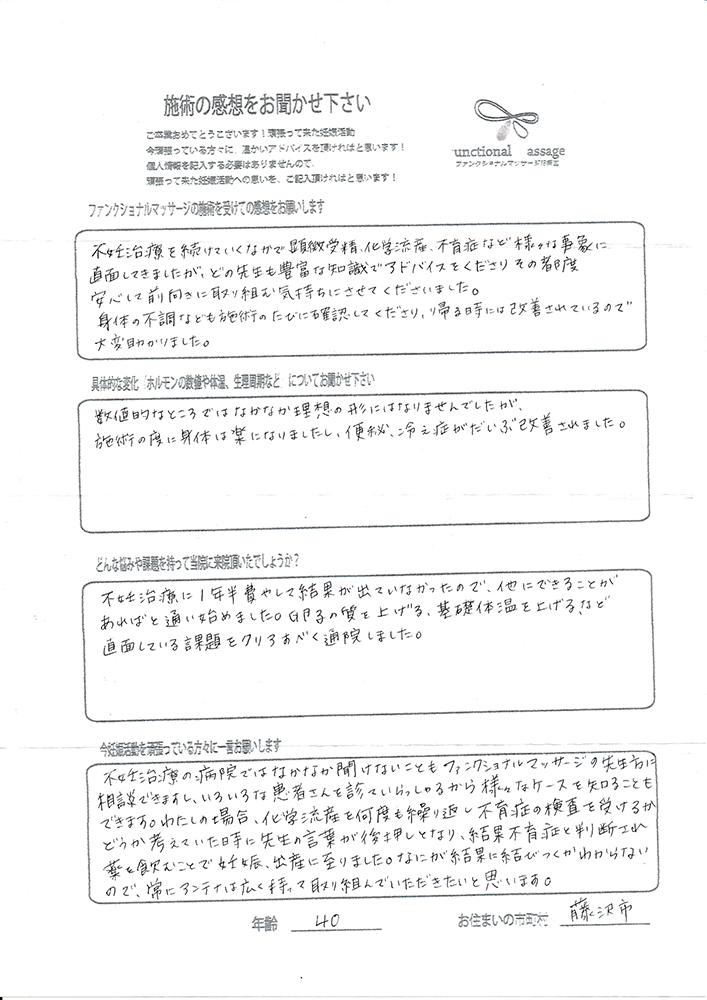 施術の感想をお聞かせ下さい
ご卒業おめでとうございます！頑張って来た妊娠活動
今頑張っている方々に、温かいアドバイスを頂ければと思います！
個人情報を記入する必要はありませんので、
頑張って来た妊娠活動への思いを、ご記入頂ければと思います！
unctional assage
ファンクショナルマッサージ
ファンクショナルマッサージの施術を受けての感想をお願いします
不妊治療を続けていくなかで顕微受精、化学流産、不育症など様々な事象に
直面してきましたが、どの先生も豊富な知識でアドバイスをくださりその都度
安心して前向きに取り組む気持ちにさせてくださいました。
身体の不調なども施術のたびに確認してくださり、帰る時には改善されているので
大変助かりました。
具体的な変化「ホルモンの数値や体温、生理周期など」についてお聞かせ下さい
数値的なところではなかなか理想の形にはなりませんでしたが、
施術の度に身体は楽になりましたし、便秘、冷え症がだいぶ改善されました。
どんな悩みや課題を持って当院に来院頂いたでしょうか？
不妊治療に1年半費やして結果が出ていなかったので、他にできることが
あればと通い始めました。卵子の質を上げる、基礎体温を上げる、など
直面している課題をクリアすべく通院しました。
今妊娠活動を頑張っている方々に一言お願いします
不妊治療の病院ではなかなか聞けないこともファンクショナルマッサージの先生方に
相談できますし、いろいろな患者さんを診ていらっしゃるから様々なケースを知ることも
できます。わたしの場合、化学流産を何度も繰り返し不育症の検査を受けるか
どうか考えていた時に先生の言葉が後押しとなり、結果不育症と判断され
薬を飲むことで妊娠、出産に至りました。なにが結果に結びつくかわからない
ので、常にアンテナは広く持って取り組んでいただきたいと思います。
年齢 40 お住まいの市町村 藤沢市